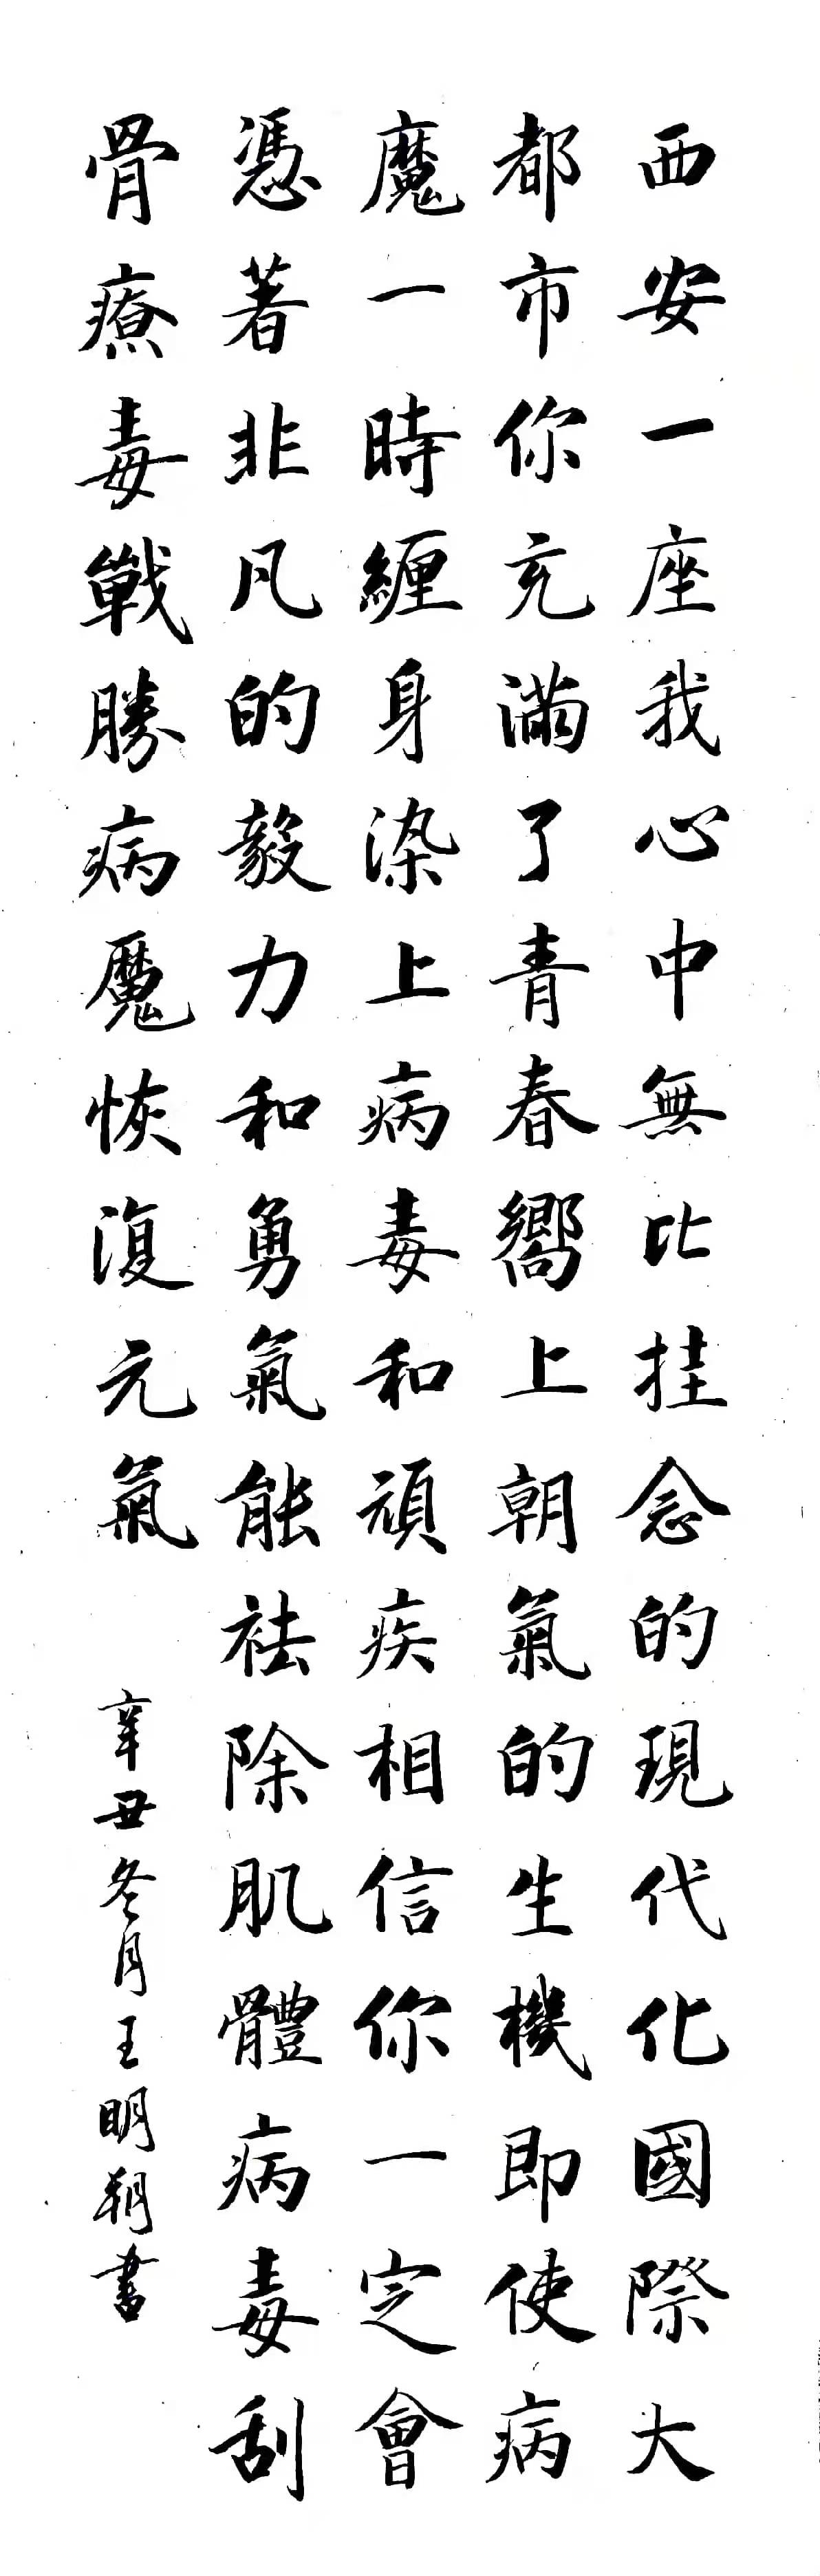 西安一座我心中無比挂念的現代化國際大
都市你充滿了青春嚮上朝氣的生機即使病
魔一時纏身染上病毒和頑疾相信你一定會
憑著非凡的毅力和勇氣能祛除肌體病毒刮
骨療毒戰勝病魔恢復元氣
辛丑冬月王明朔書